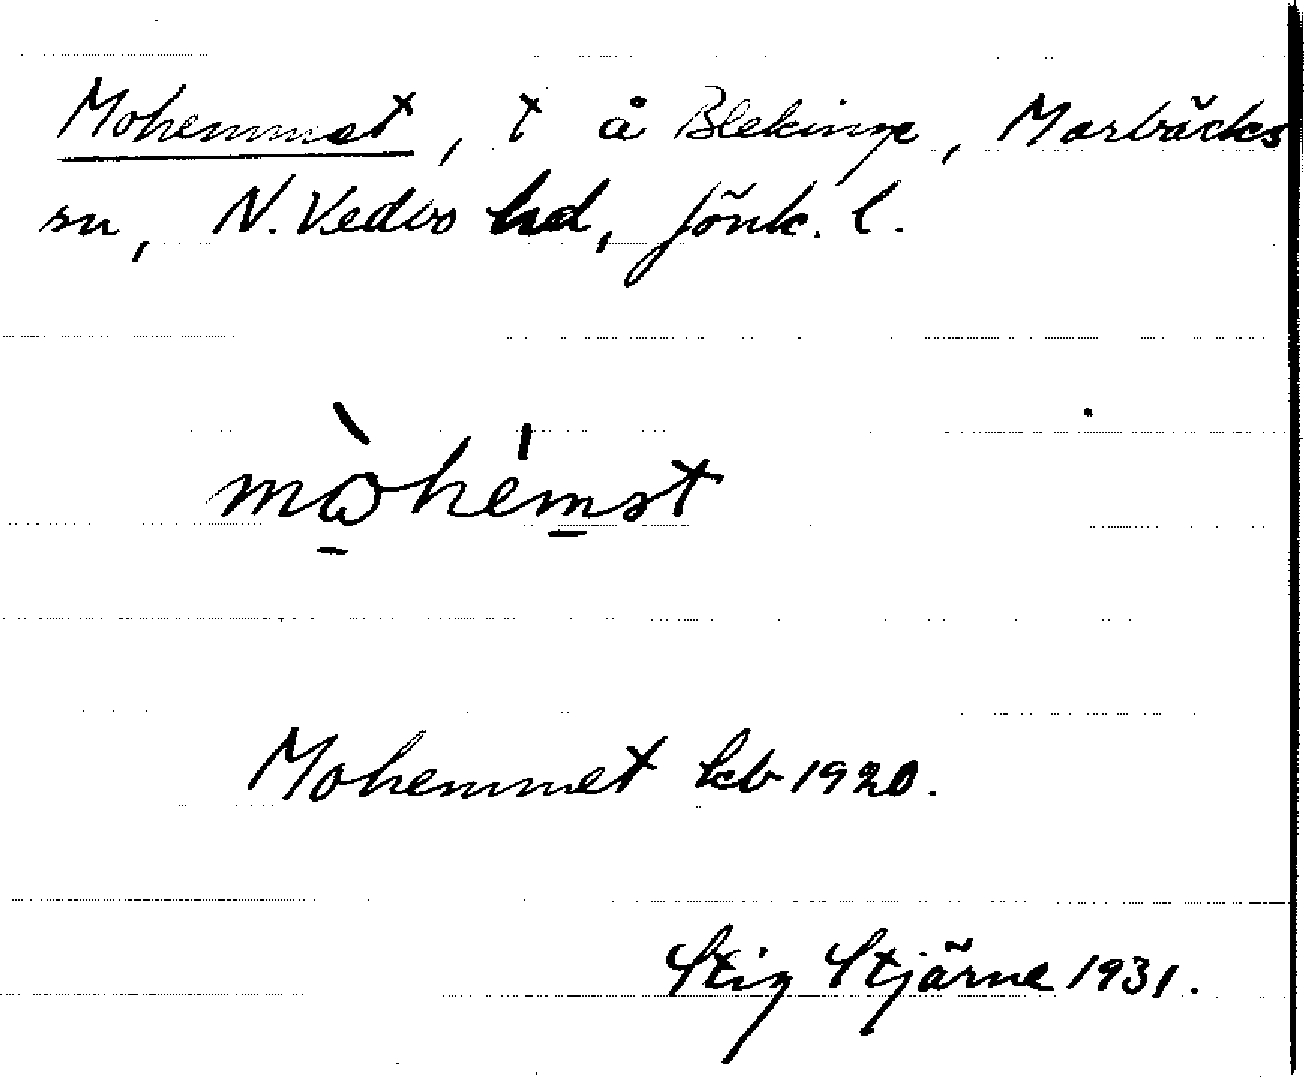 Mohemmet, t å Blekinge, Marbäcks
sn, N. Vedbo hd, Jönk. l.
mòhémst
Mohemmet kb 1920.
Stig Stjärne 1931.